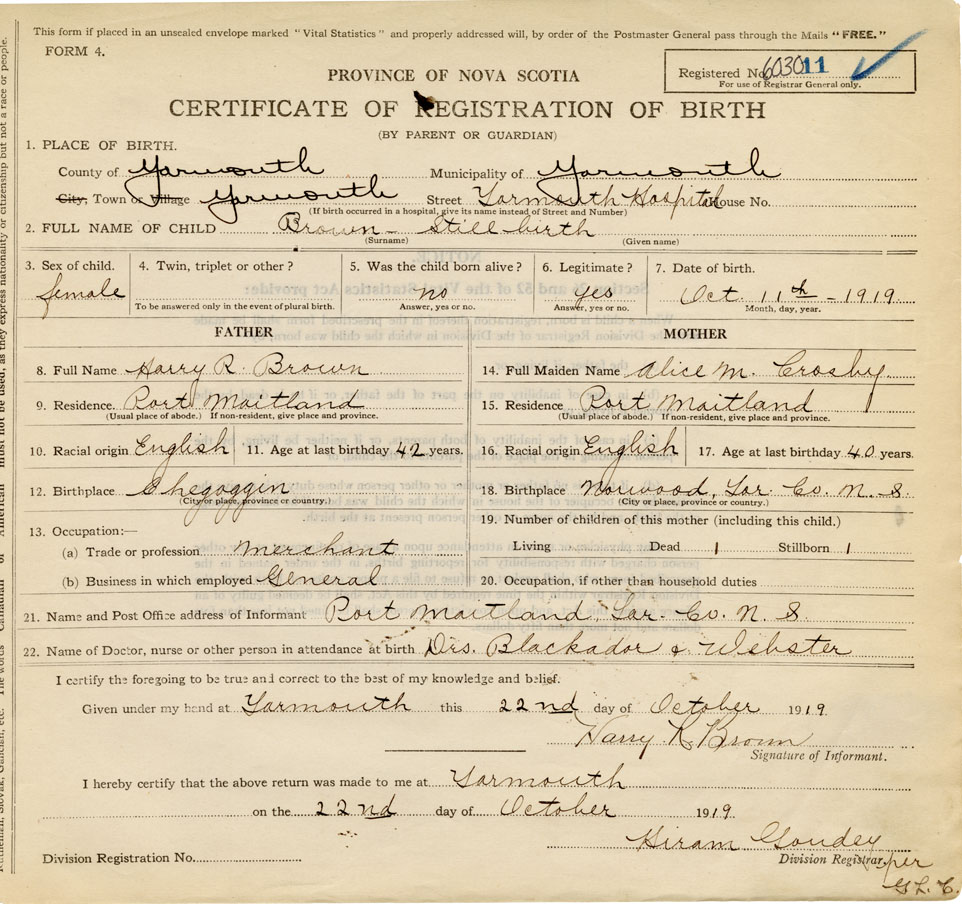 This form if placed in an unsealed envelope marked "Vital Statistics" and properly addressed will, by order of the Postmaster General pass through the Mails "FREE."
FORM 4.
Registered No. 603011
For use of Registrar General only.
PROVINCE OF NOVA SCOTIA
CERTIFICATE OF REGISTRATION OF BIRTH
(BY PARENT OR GUARDIAN)
1. PLACE OF BIRTH.
County of Yarmouth Municipality of Yarmouth
City, Town or Village Yarmouth Street Yarmouth Hospital House No.
(If birth occurred in a hospital, give its name instead of Street and Number)
2. FULL NAME OF CHILD Brown - Still-birth
(Surname) (Given name)
3. Sex of child. 4. Twin, triplet or other? 5. Was the child born alive? 6. Legitimate? 7. Date of birth.
female no yes Oct 11th - 1919
To be answered only in the event of plural birth. Answer, yes or no. Answer, yes or no. Month, day, year.
FATHER MOTHER
8. Full Name Harry R. Brown 14. Full Maiden Name Alice M. Crosby
9. Residence. Port Maitland 15. Residence Port Maitland
(Usual place of abode.) If non-resident, give place and province. (Usual place of abode.) If non-resident, give place and province.
10. Racial origin English 11. Age at last birthday 42 years. 16. Racial origin English 17. Age at last birthday 40 years.
12. Birthplace Chegoggin 18. Birthplace Norwood, Yar. Co. N. S.
(City or place, province or country.) (City or place, province or country.)
13. Occupation:— 19. Number of children of this mother (including this child.)
(a) Trade or profession Merchant Living Dead 1 Stillborn 1
(b) Business in which employed General 20. Occupation, if other than household duties
21. Name and Post Office address of Informant Port Maitland, Yar. Co. N. S.
22. Name of Doctor, nurse or other person in attendance at birth Drs. Blackador & Webster
I certify the foregoing to be true and correct to the best of my knowledge and belief.
Given under my hand at Yarmouth this 22nd day of October 1919.
Harry R Brown
Signature of Informant.
I hereby certify that the above return was made to me at Yarmouth
on the 22nd day of October 1919.
Hiram Goudey
Division Registration No. Division Registrar. per
G. L. C.